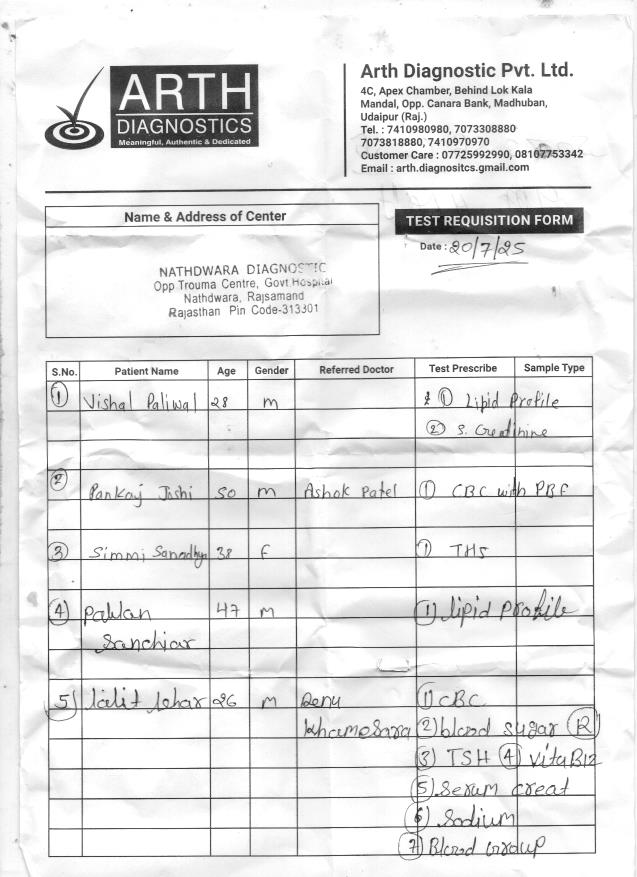 ARTH
DIAGNOSTICS
Meaningful, Authentic & Dedicated
Arth Diagnostic Pvt. Ltd.
4C, Apex Chamber, Behind Lok Kala
Mandal, Opp. Canara Bank, Madhuban,
Udaipur (Raj.)
Tel. : 7410980980, 7073308880
7073818880, 7410970970
Customer Care : 07725992990, 08107753342
Email : arth.diagnositcs.gmail.com
Name & Address of Center
NATHDWARA DIAGNOSTIC
Opp Trouma Centre, Govt.Hospital
Nathdwara, Rajsamand
Rajasthan Pin Code-313301
TEST REQUISITION FORM
Date : 20/7/25
S.No. Patient Name Age Gender Referred Doctor Test Prescribe Sample Type
1 Vishal Paliwal 28 m 1 Lipid Profile
2 S. Creatinine
2 Pankaj Joshi 50 m Ashok Patel 1 CBC with PBF
3 Simmi Sanadhya 38 F 1 THS
4 Pawan 47 m 1 lipid profile
Sanchiar
5 lalit lohar 26 m Renu 1 CBC
khamesara 2 blood sugar R
3 TSH 4 vita B12
5 Serum creat
6 Sodium
7 Blood Group